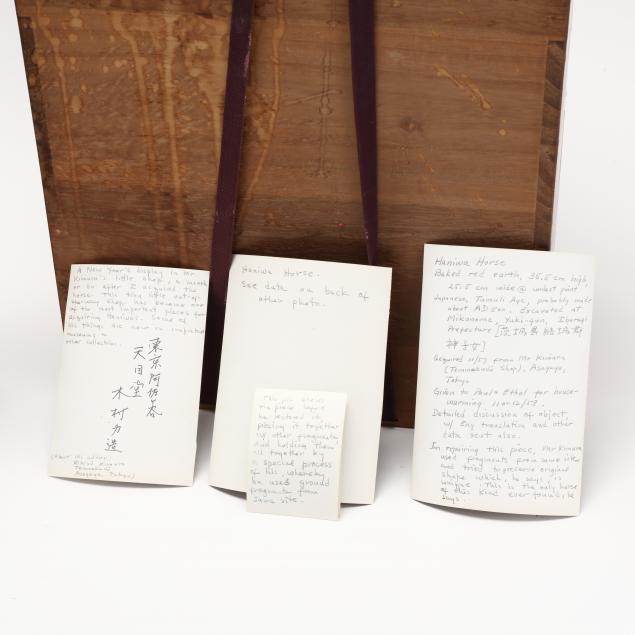 A New Year's display in Mr.
Kimura's little shop, a month
or so after I acquired the
horse. This tiny little
shop has become one
of the most important places for
acquiring Haniwas. Some of
his things are now in important
museums +
other collections.
東京阿佐ヶ谷
天目堂
木村力造
Rikizo Kimura
Asagaya, Tokyo)
Haniwa Horse.
See data on back of
other photo.
This pic shows
the piece before
he restored it,
piecing it together
w/ other fragments
and holding them
all together by
a special process
of his, whereby
he used ground
fragments from
same site.
Haniwa Horse
Baked red earth, 35.5 cm high,
25.5 cm wide @ widest point.
Japanese, Tumuli Age, probably made
about AD 500. Excavated at
Yuki-gun, Ibaragi
Prefecture
Acquired 11/57 from Mr Kimura
Shop), Asagaya,
Tokyo
Given to Paul + Ethel for house-
warming 11 or 12/57.
Detailed discussion of object,
w/ Eng translation and other
data sent also.
In repairing this piece, Mr Kimura
used fragments from same site
and tried to preserve original
shape which, he says, is
unique. This is the only horse
of this kind ever found, he
says.